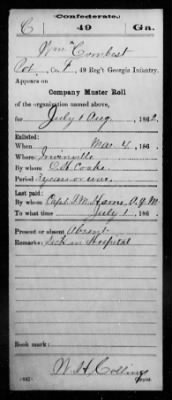 Confederate.
C 49 Ga.
Wm Combest
Pvt, Co. F, 49 Reg't Georgia Infantry.
Appears on
Company Muster Roll
of the organization named above,
for July & Aug, 1862.
Enlisted:
When Mar 4, 186 .
Where Irwinville
By whom C H Cooke
Period 3 years or war.
Last paid:
By whom Capt. T. M. Harris, A.Q.M.
To what time July 1, 186 .
Present or absent Absent
Remarks: Sick in Hospital
Book mark:
W. H. Collins